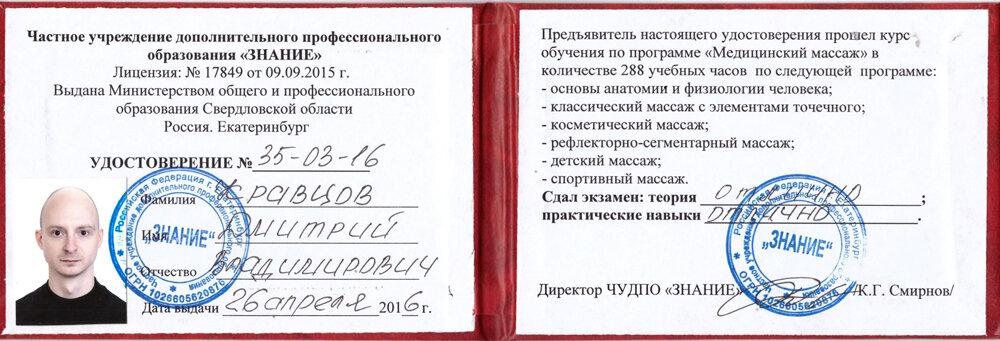 Частное учреждение дополнительного профессионального
образования «ЗНАНИЕ»
Лицензия: № 17849 от 09.09.2015 г.
Выдана Министерством общего и профессионального
образования Свердловской области
Россия. Екатеринбург
УДОСТОВЕРЕНИЕ № 35-03-16
Фамилия Кравцов
Имя Дмитрий
Отчество Владимирович
Дата выдачи 26 апреля 2016 г.
Российская Федерация г. Екатеринбург
„ЗНАНИЕ"
ОГРН 1026605620876
Предъявитель настоящего удостоверения прошел курс
обучения по программе «Медицинский массаж» в
количестве 288 учебных часов по следующей программе:
- основы анатомии и физиологии человека;
- классический массаж с элементами точечного;
- косметический массаж;
- рефлекторно-сегментарный массаж;
- детский массаж;
- спортивный массаж.
Сдал экзамен: теория отлично;
практические навыки отлично.
„ЗНАНИЕ"
ОГРН 1026605620876
Директор ЧУДПО «ЗНАНИЕ» /К.Г. Смирнов/